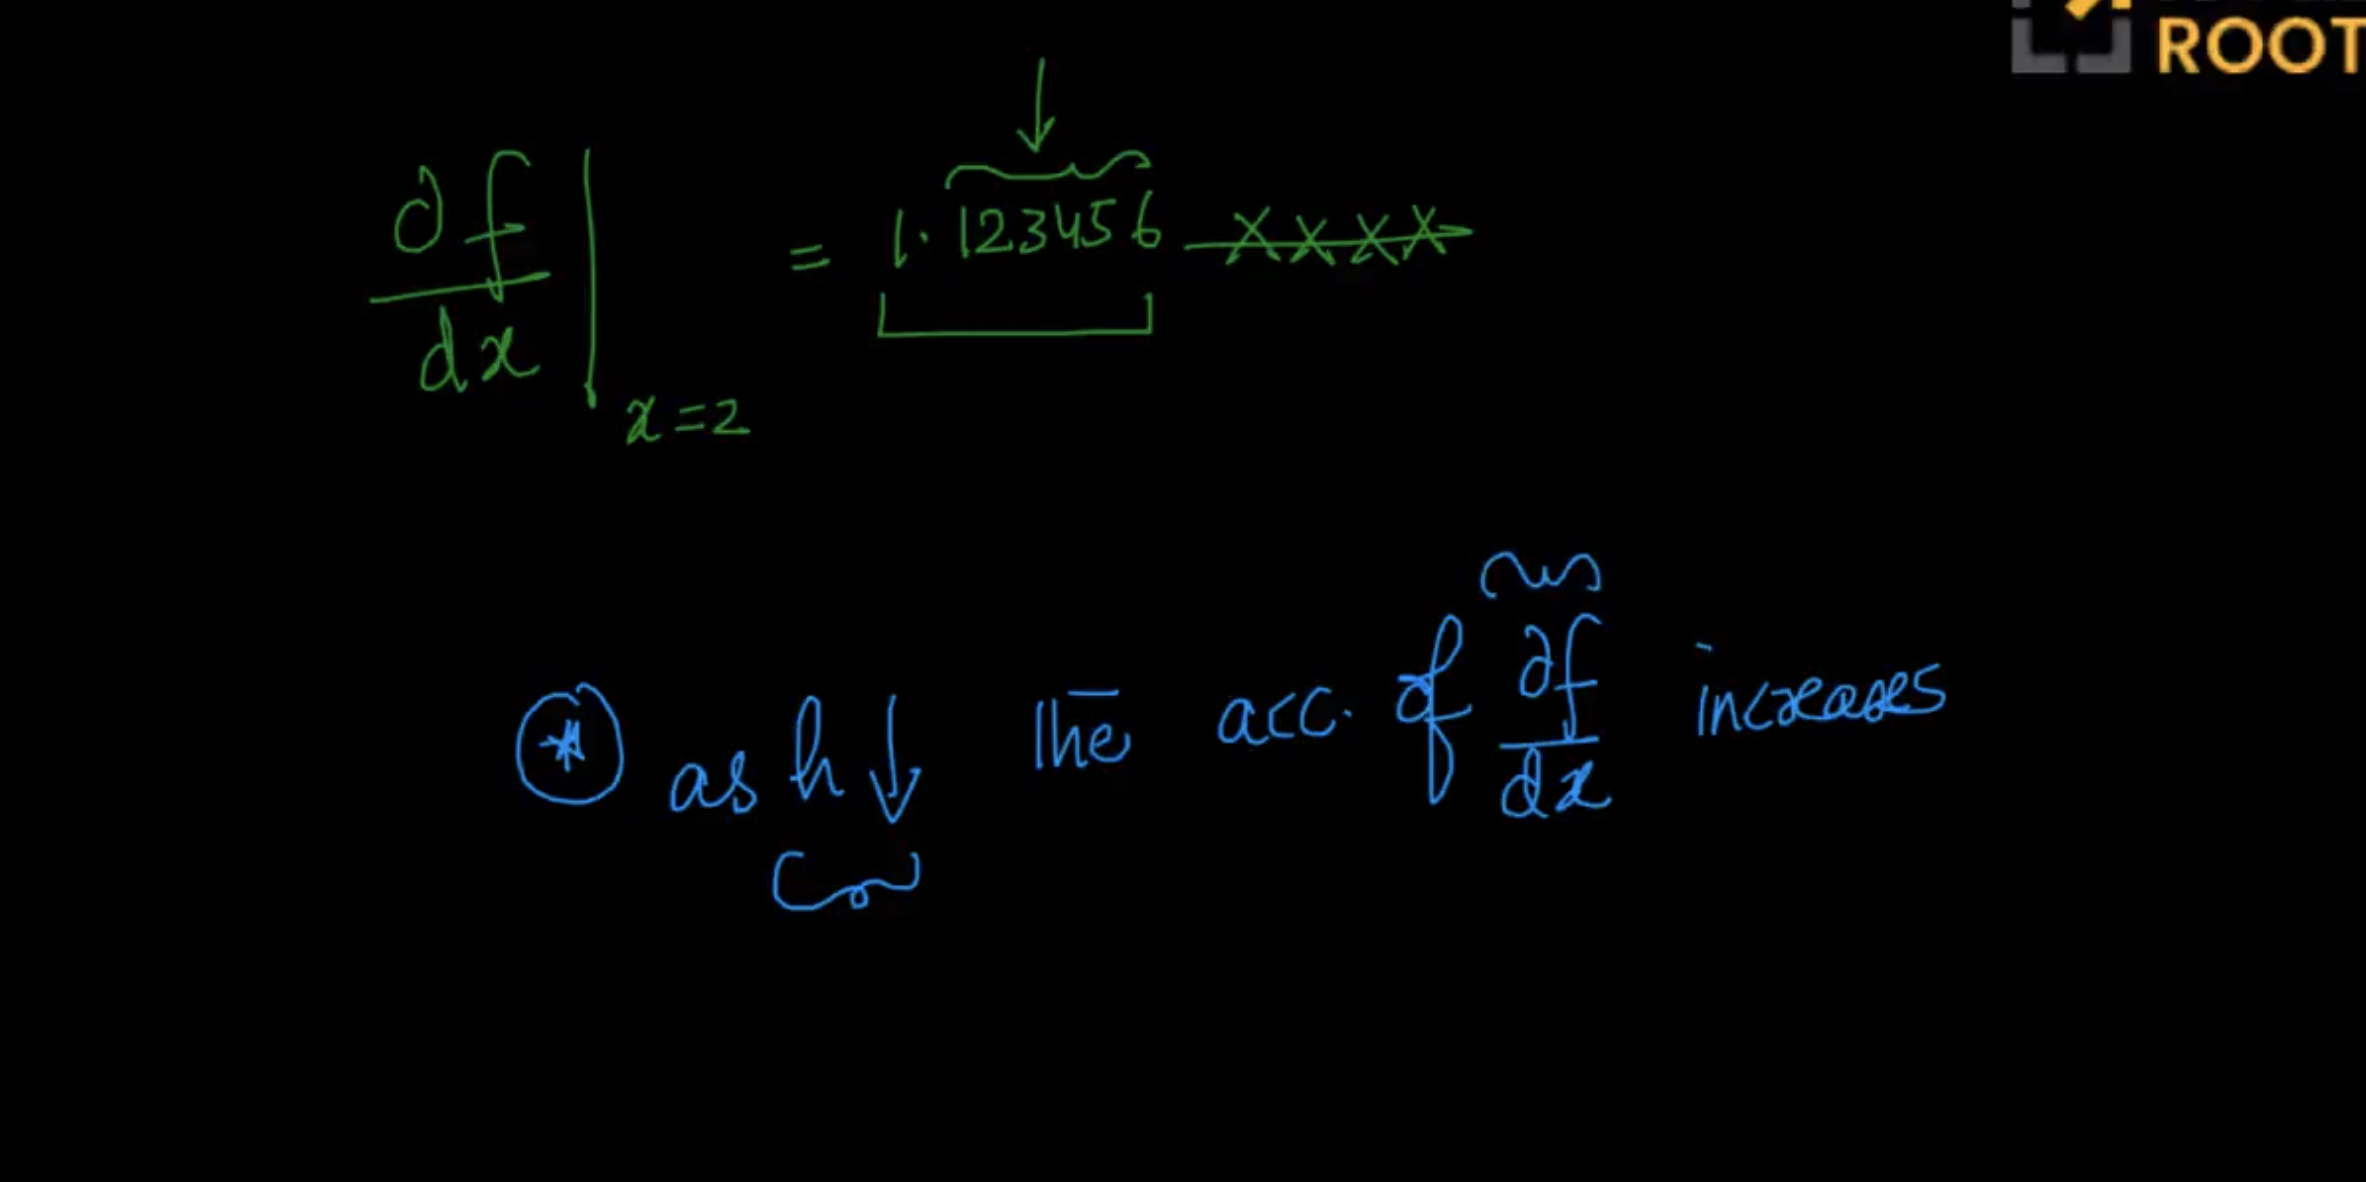 ROOT
∂f/dx | x=2 = 1.123456 xxxx
* as h↓ the acc. of ∂f/dx increases